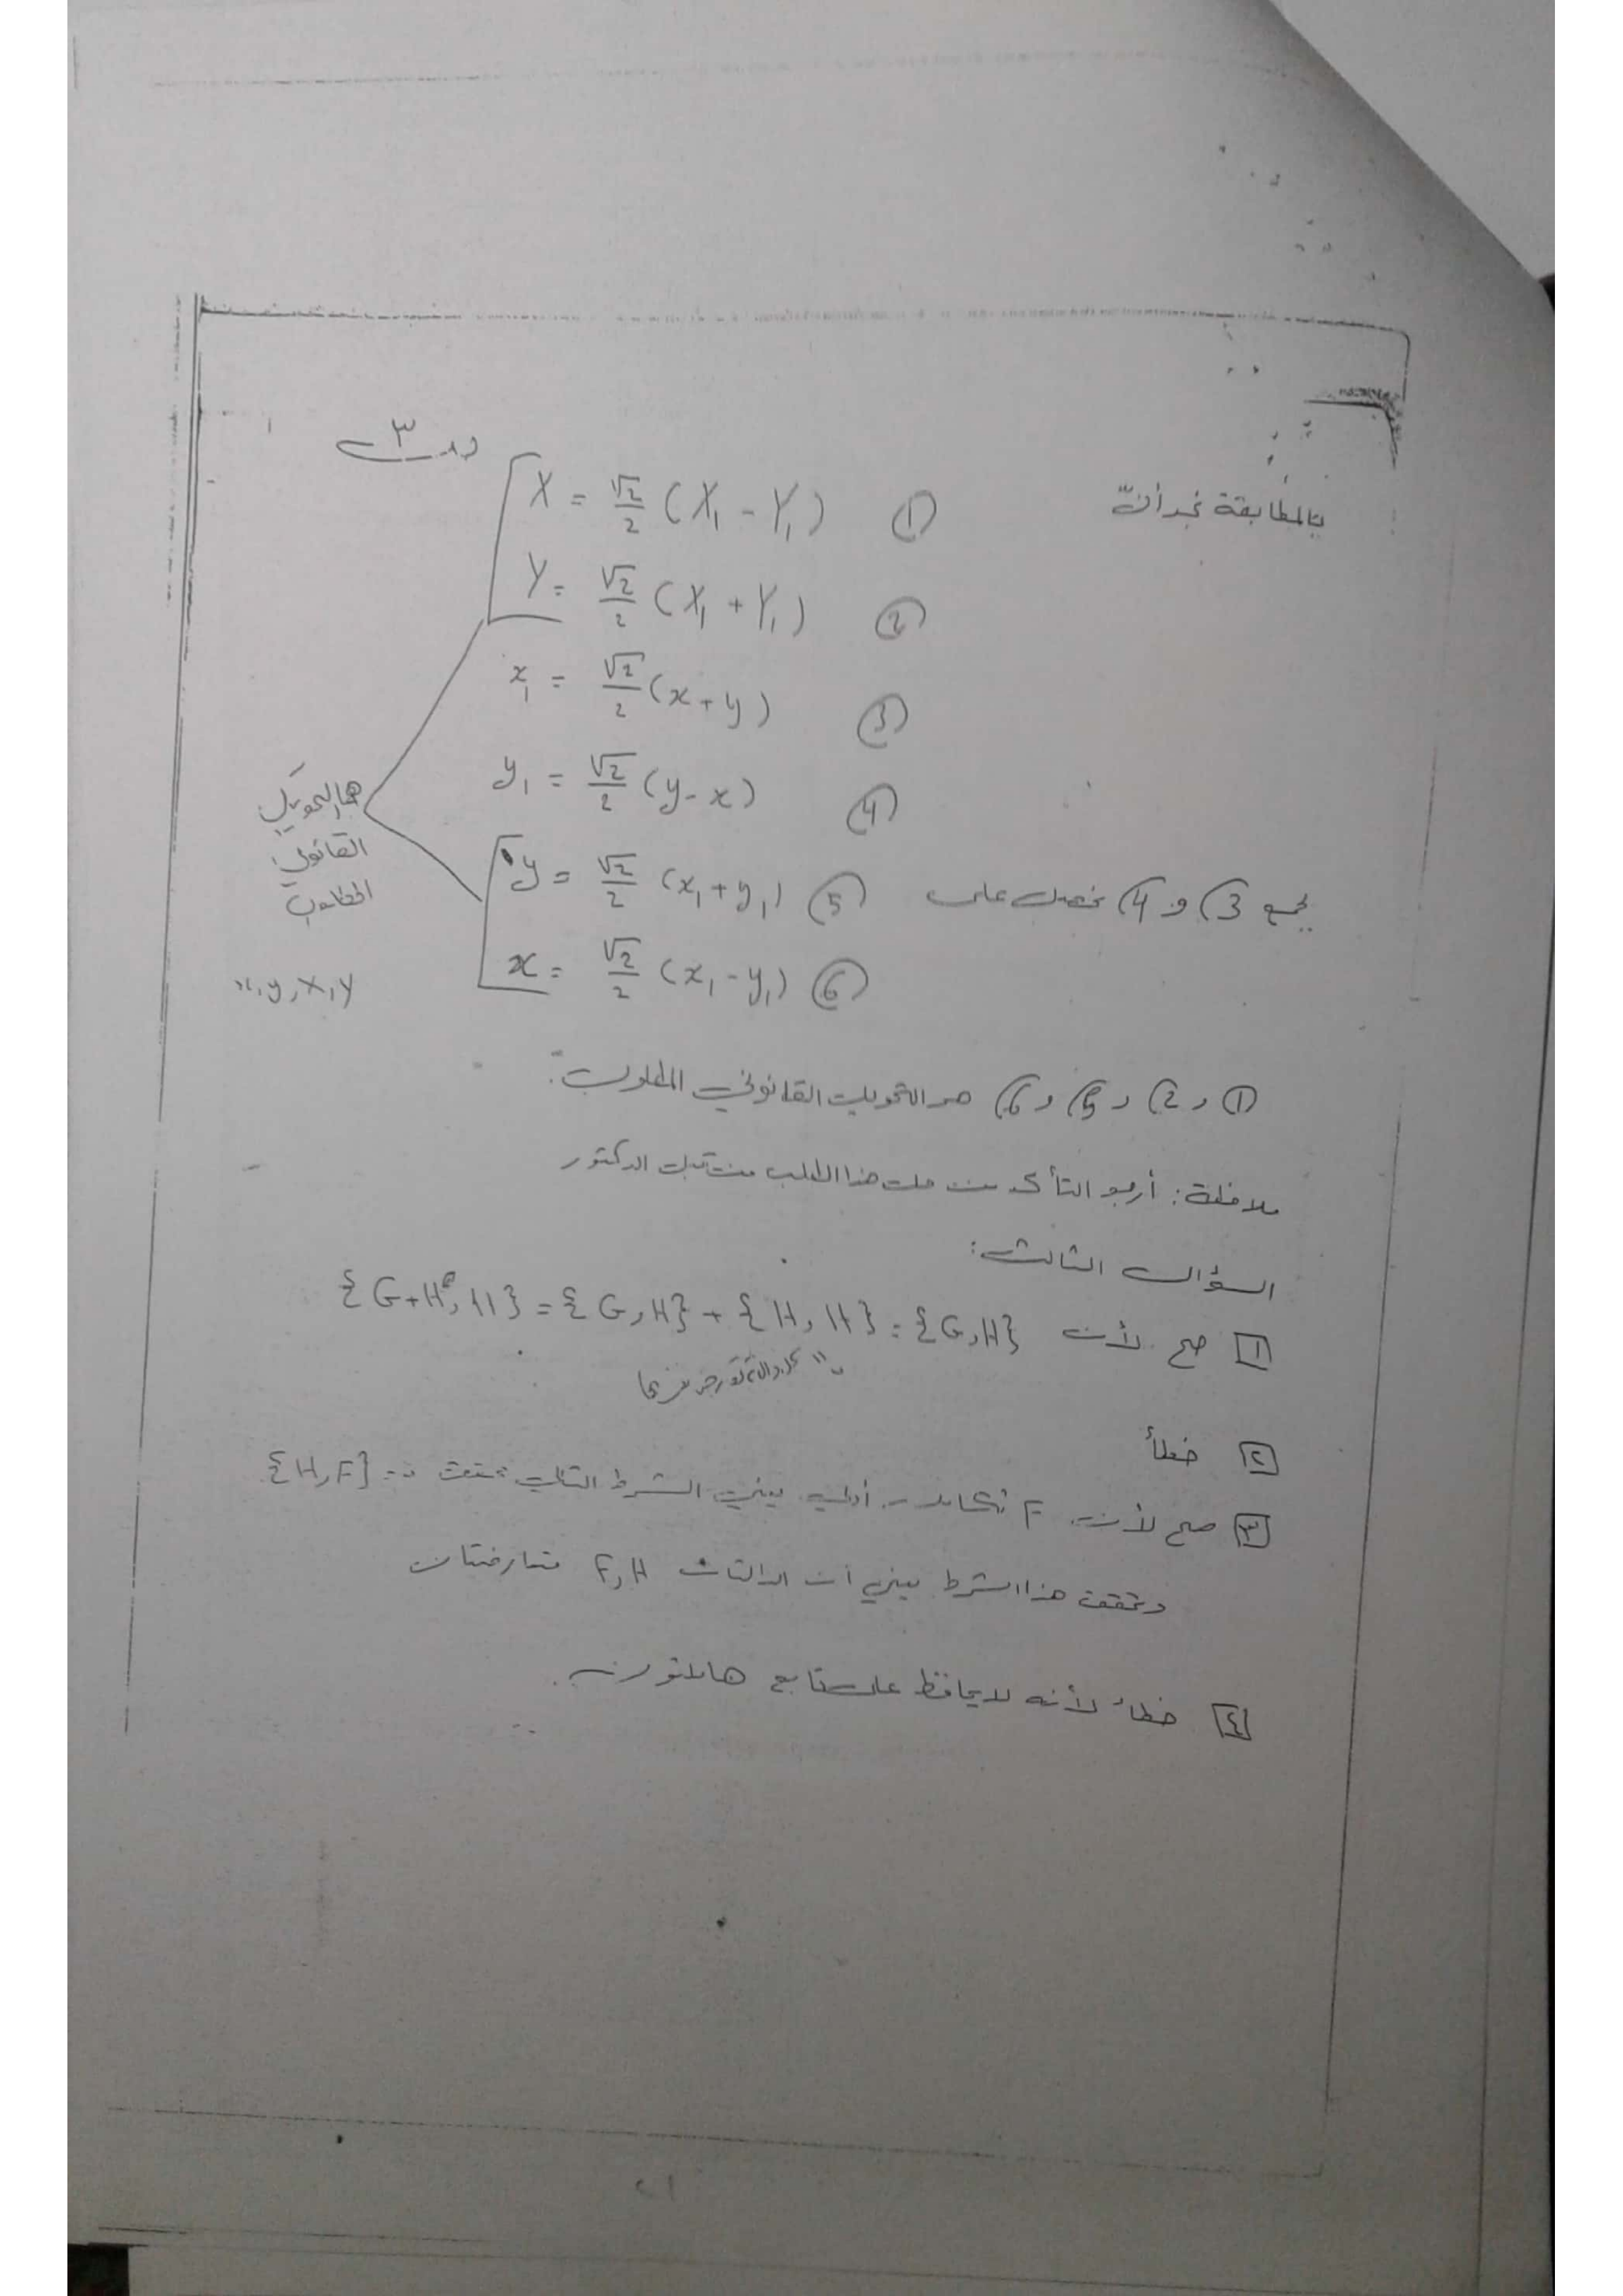 بالمطابقة نجد أنّ
X = √2/2 (X₁ - Y₁) ①
Y = √2/2 (X₁ + Y₁) ②
x₁ = √2/2 (x + y) ③
y₁ = √2/2 (y - x) ④
بجمع 3 و 4 نحصل على y = √2/2 (x₁ + y₁) ⑤
x = √2/2 (x₁ - y₁) ⑥
هما التحويل
القانوني
المطلوب
x, y, X, Y
① و ② و ⑤ و ⑥ هو التحويل القانوني المطلوب.
ملاحظة: أرجو التأكد من حل هذا الطلب من قبل الدكتور
السؤال الثالث:
[١] صح لأن {G+H, H} = {G,H} + {H,H} = {G,H}
[٢] خطأ
[٣] صح لأن F تكامل أولي يعني الشرط التالي محقق {H,F} = 0
وتحقق هذا الشرط يعني أن الدالتان F, H متعارضتان
[٤] خطأ لأنه لا يحافظ على تابع هاملتون.